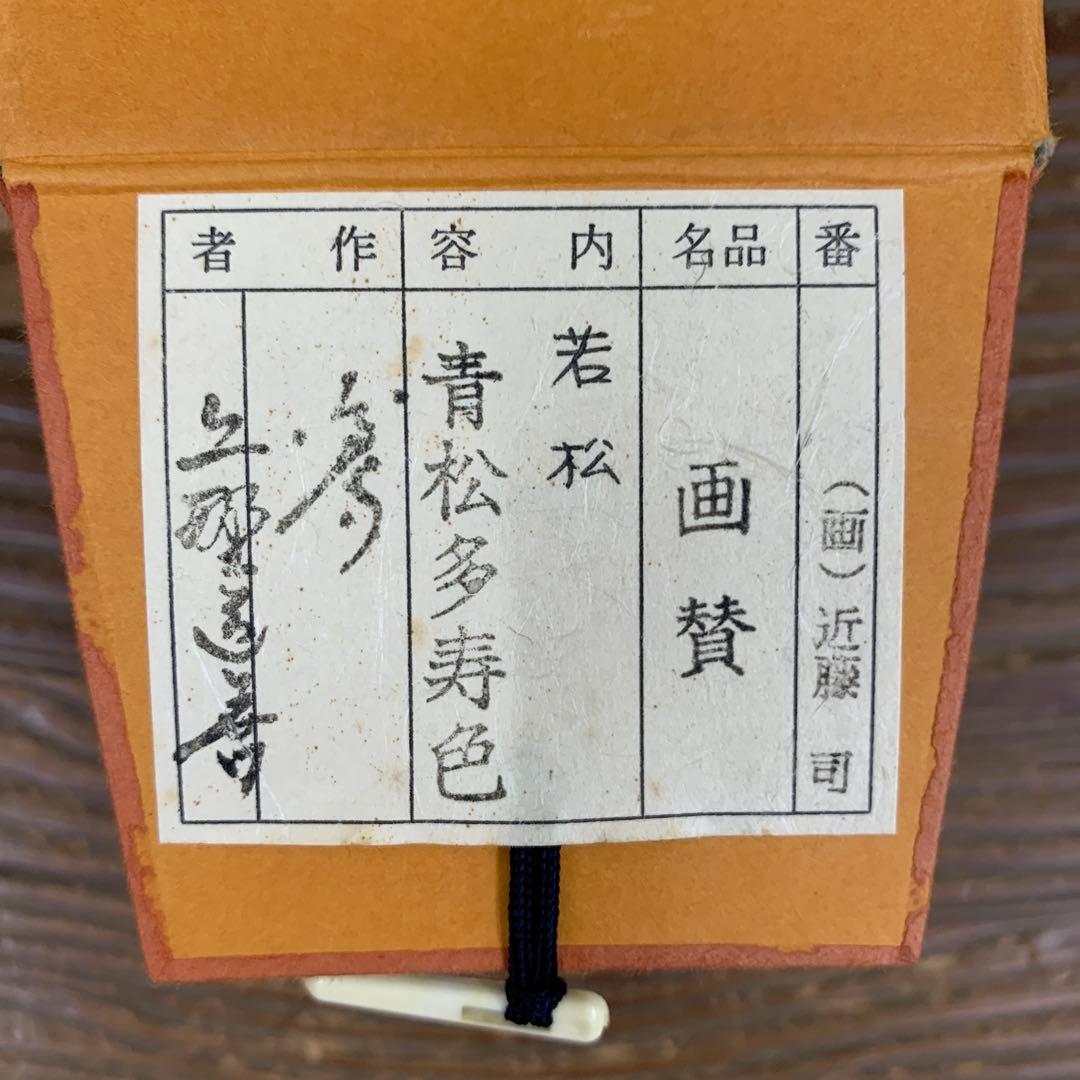 番
（画）近藤 司
品名
画賛
内容
若松
青松多寿色
作者
上野道善